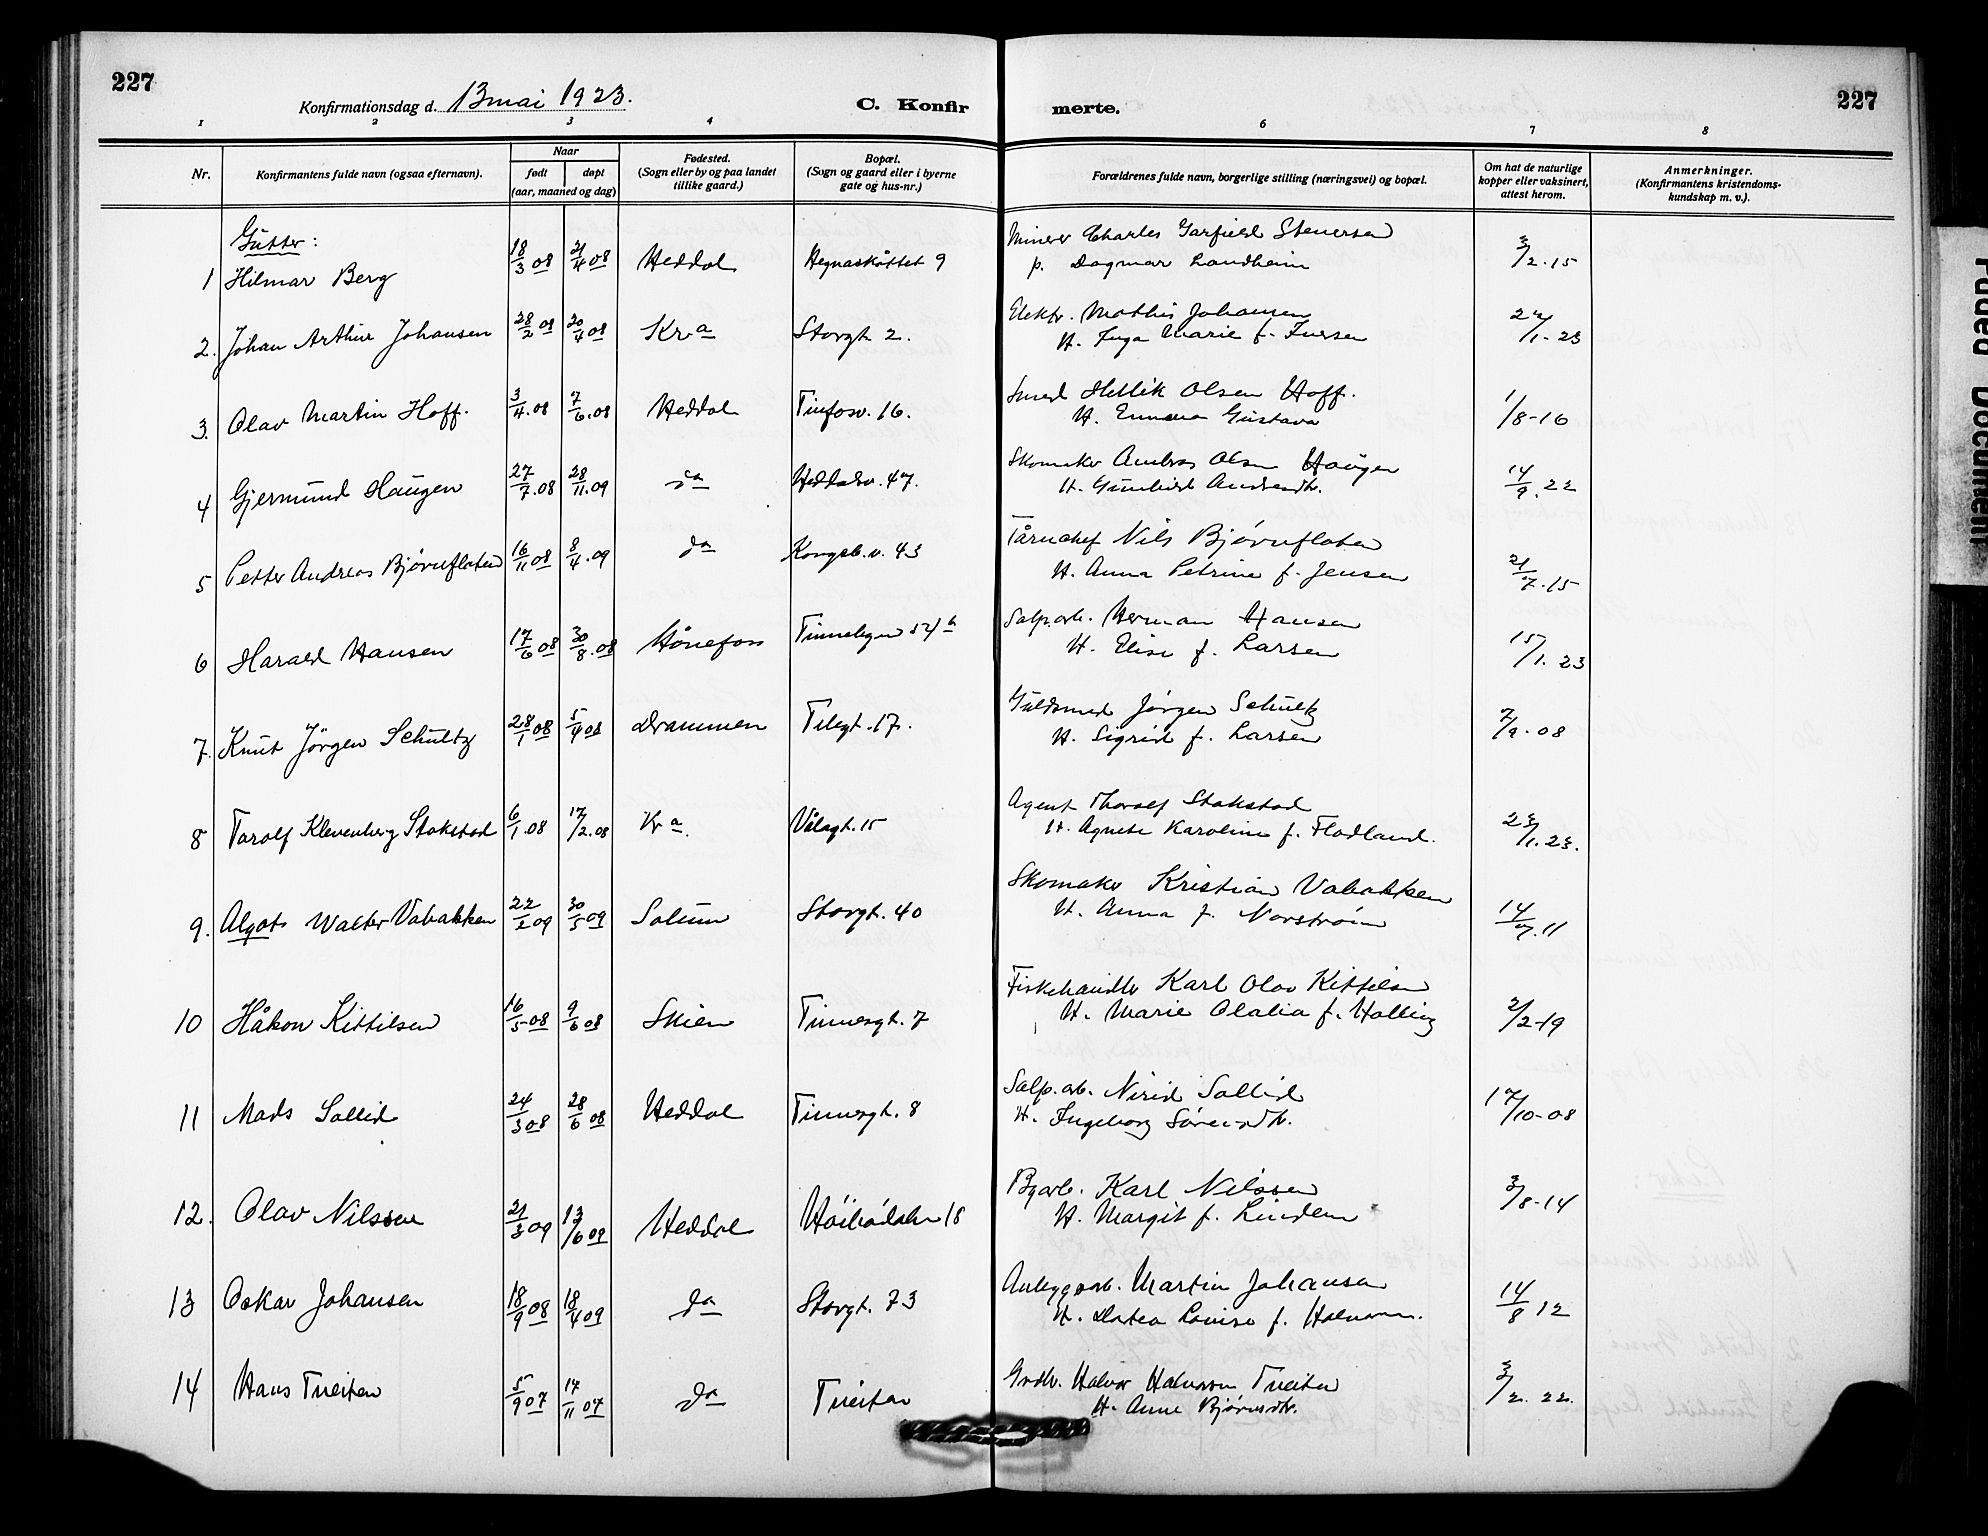 227
Konfirmationsdag d. 13 mai 1923.
C. Konfir
merte.
227
1 2 3 4 6 7 8
Nr. Konfirmantens fulde navn (ogsaa efternavn). Naar født døpt (aar, maaned og dag) Fødested. (Sogn eller by og paa landet tillike gaard.) Bopæl. (Sogn og gaard eller i byerne gate og hus-nr.) Forældrenes fulde navn, borgerlige stilling (næringsvei) og bopæl. Om hat de naturlige kopper eller vaksinert, attest herom. Anmerkninger. (Konfirmantens kristendoms-kundskap m. v.).
Gutter:
1 Hilmar Berg 18/3 08 21/4 08 Heddal 9 Minerer Charles Garfield Stenersen 3/2-15
p. Dagmar Landheim
2. Johan Arthur Johansen 28/2 08 20/4 08 Kr a Storgt. 2. Elektr. Mathis Johansen 24/1-23
H. Inga Marie f. Iversen
3. Olav Martin Hoff. 3/4.08 7/6.08 Heddal Tinfosv. 16. Smed Hellik Olsen Hoff. 1/8-16
H. Emma Gustava
4 Gjermund Haugen 27/7.08 28/11.09 do Heddalsv. 47. Skomaker Andras Olsen Haugen 14/9.22
H. Gunhild
5 Petter Andreas Bjørnflaten 16/11 08 8/4.09 do Kongsb.v. 43 Nils Bjørnflaten 21/7.15
H. Anna Petrine f. Jensen
6 Harald Hansen 17/6 08 30/8.08 Hønefoss Tinnebyen 54 b Salp.arb. Herman Hansen 15/1.23
H. Elise f. Larsen
7. Knut Jørgen Schultz 28/1 08 5/4 08 Drammen Telegt. 17. Guldsmed Jørgen Schultz 7/9-08
H. Sigrid f. Larsen
8 Torolf Klevenberg Stokstad 6/1.08 17/2.08 Kr a. Vålagt. 15 Agent Thorolf Stokstad 23/1.23.
H. Agnete Karoline f. Flodland.
9. Algots Walter Vabakken 22/2 09 30/5 09 Solum Storgt. 40 Skomaker Kristian Vabakken 14/7.11
H. Anna f. Norstrøm
10 Håkon Kittilsen 16/5 08 9/6 08 Skien Tinnesgt. 7 Fiskehandler Karl Olav Kittilsen 2/2-19
H. Marie Olalia f. Halling
11 Mads Sollid 24/3 08 28/6 08 Heddal Tinnesgt. 8 Salp.arb. Nirid Sollid 17/10-08
H. Ingeborg Sørensdtr.
12. Olav Nilssen 21/3 09 13/6 09 Heddal Høibødalen 18 Byarb. Karl Nilssen 3/8-14
H. Margit f. Lindem
13 Oskar Johansen 18/9 08 18/4 09 do Storgt. 73 Anlæggsarb. Martin Johansen 14/8 12
H. Dortea Lovise f. Halvorsen.
14 Hans Tveiten 5/9 07 17/11 07 do Tveiten Grdbr. Halvor Halvorsen Tveiten 3/2.22.
H. Anne Bjørnsdtr.
Faded Document